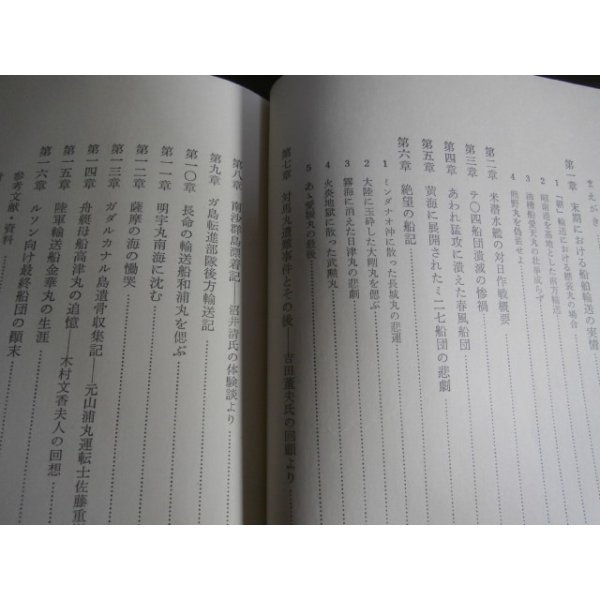 まえがき
第一章 末期における船舶輸送の実情
2 昭南港を基地とした南方輸送
第二章 米潜水艦の対日作戦概要
第三章 テ〇四船団潰滅の惨禍
第四章 あわれ猛攻に潰えた春風船団
第五章 黄海に展開されたミ二七船団の悲劇
第六章 絶望の船記
1 ミンダナオ沖に散った長城丸の悲運
2 大陸に玉砕した大剛丸を偲ぶ
3 霧海に消えた日津丸の悲劇
4 火炎地獄に散った武勲丸
5 あゝ愛媛丸の最後
第七章 対馬丸遭難事件とその後――吉田薫夫氏の回顧より
第八章 南沙群島漂着記――沼井清氏の体験談より
第九章 ガ島転進部隊後方輸送記
第一〇章 長命の輸送船和浦丸を偲ぶ
第一一章 明宇丸南海に沈む
第一二章 薩摩の海の慟哭
第一三章 ガダルカナル島遺骨収集記――元山浦丸運転士佐藤重
第一四章 舟艇母船高津丸の追憶――木村文香夫人の回想
第一五章 陸軍輸送船金華丸の生涯
第一六章 ルソン向け最終船団の顚末
参考文献・資料